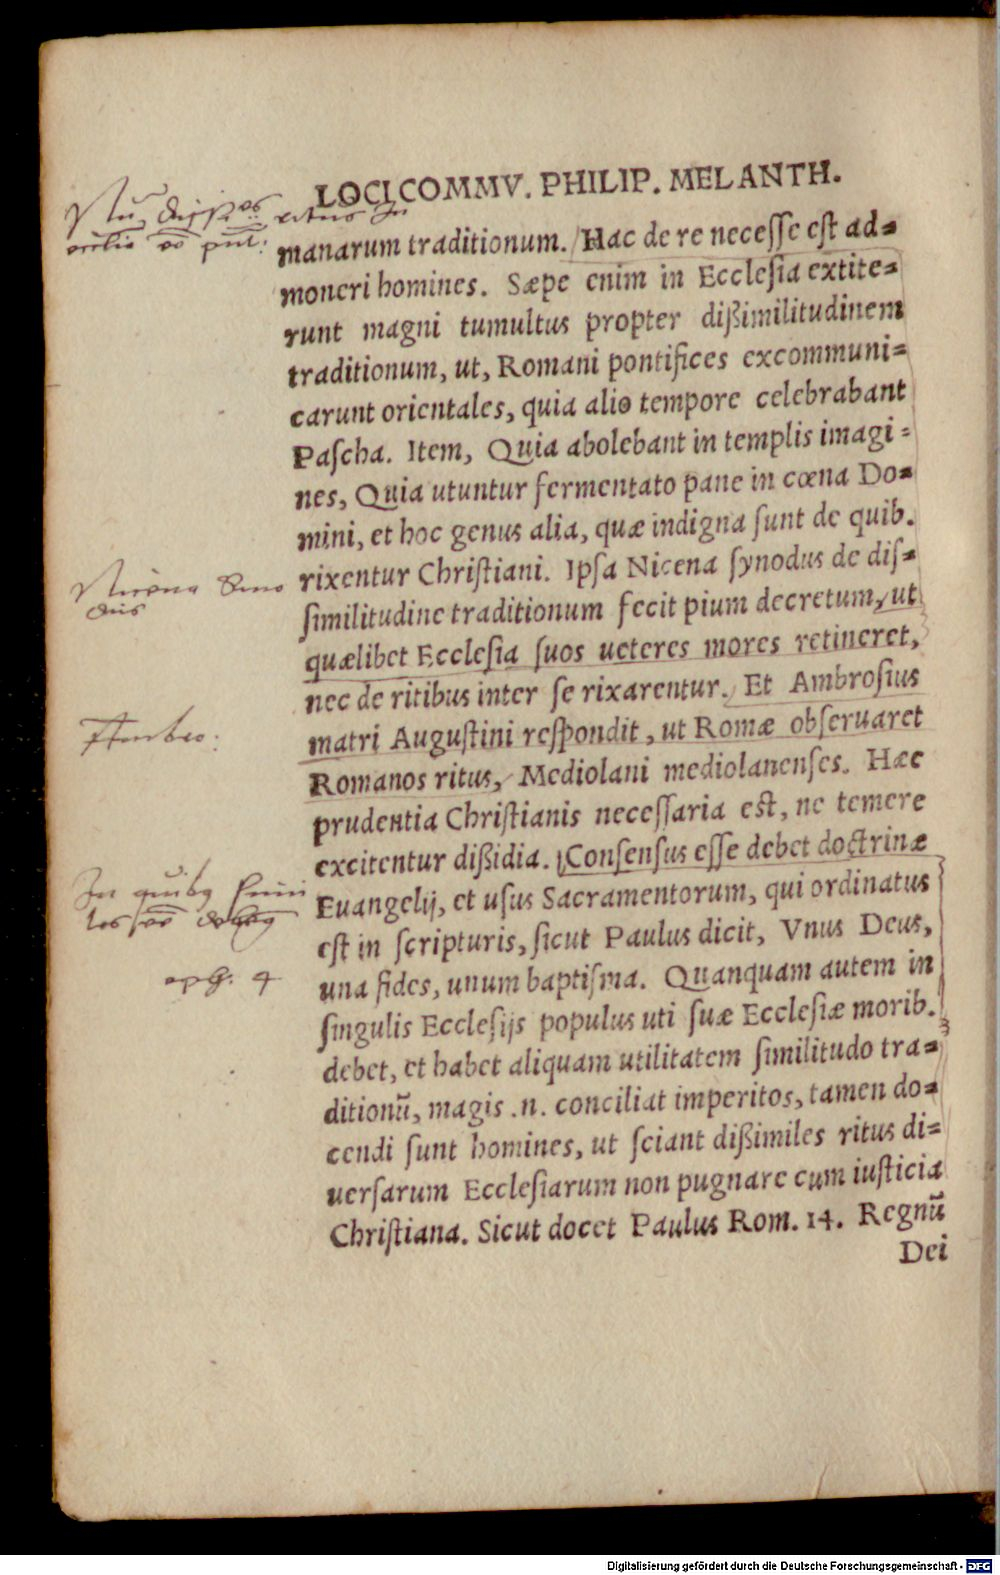 LOCI COMMV. PHILIP. MELANTH.
manarum traditionum. Hac de re necesse est ad=
moneri homines. Sæpe enim in Ecclesia extite=
runt magni tumultus propter dißimilitudinem
traditionum, ut, Romani pontifices excommuni=
carunt orientales, quia alio tempore celebrabant
Pascha. Item, Quia abolebant in templis imagi=
nes, Quia utuntur fermentato pane in cœna Do=
mini, et hoc genus alia, quæ indigna sunt de quib.
rixentur Christiani. Ipsa Nicena synodus de dis=
similitudine traditionum fecit pium decretum, ut
quælibet Ecclesia suos ueteres mores retineret,
nec de ritibus inter se rixarentur. Et Ambrosius
matri Augustini respondit, ut Romæ obseruaret
Romanos ritus, Mediolani mediolanenses. Hæc
prudentia Christianis necessaria est, ne temere
excitentur dißidia. Consensus esse debet doctrinæ
Euangelij, et usus Sacramentorum, qui ordinatus
est in scripturis, sicut Paulus dicit, Vnus Deus,
una fides, unum baptisma. Quanquam autem in
singulis Ecclesijs populus uti suæ Ecclesiæ morib.
debet, et habet aliquam utilitatem similitudo tra=
ditionū, magis .n. conciliat imperitos, tamen do=
cendi sunt homines, ut sciant dißimiles ritus di=
uersarum Ecclesiarum non pugnare cum iusticia
Christiana. Sicut docet Paulus Rom. 14. Regnū
Dei
Nicena Sino
dus
Ambro:
In quibus
eph: 4
Digitalisierung gefördert durch die Deutsche Forschungsgemeinschaft - DFG